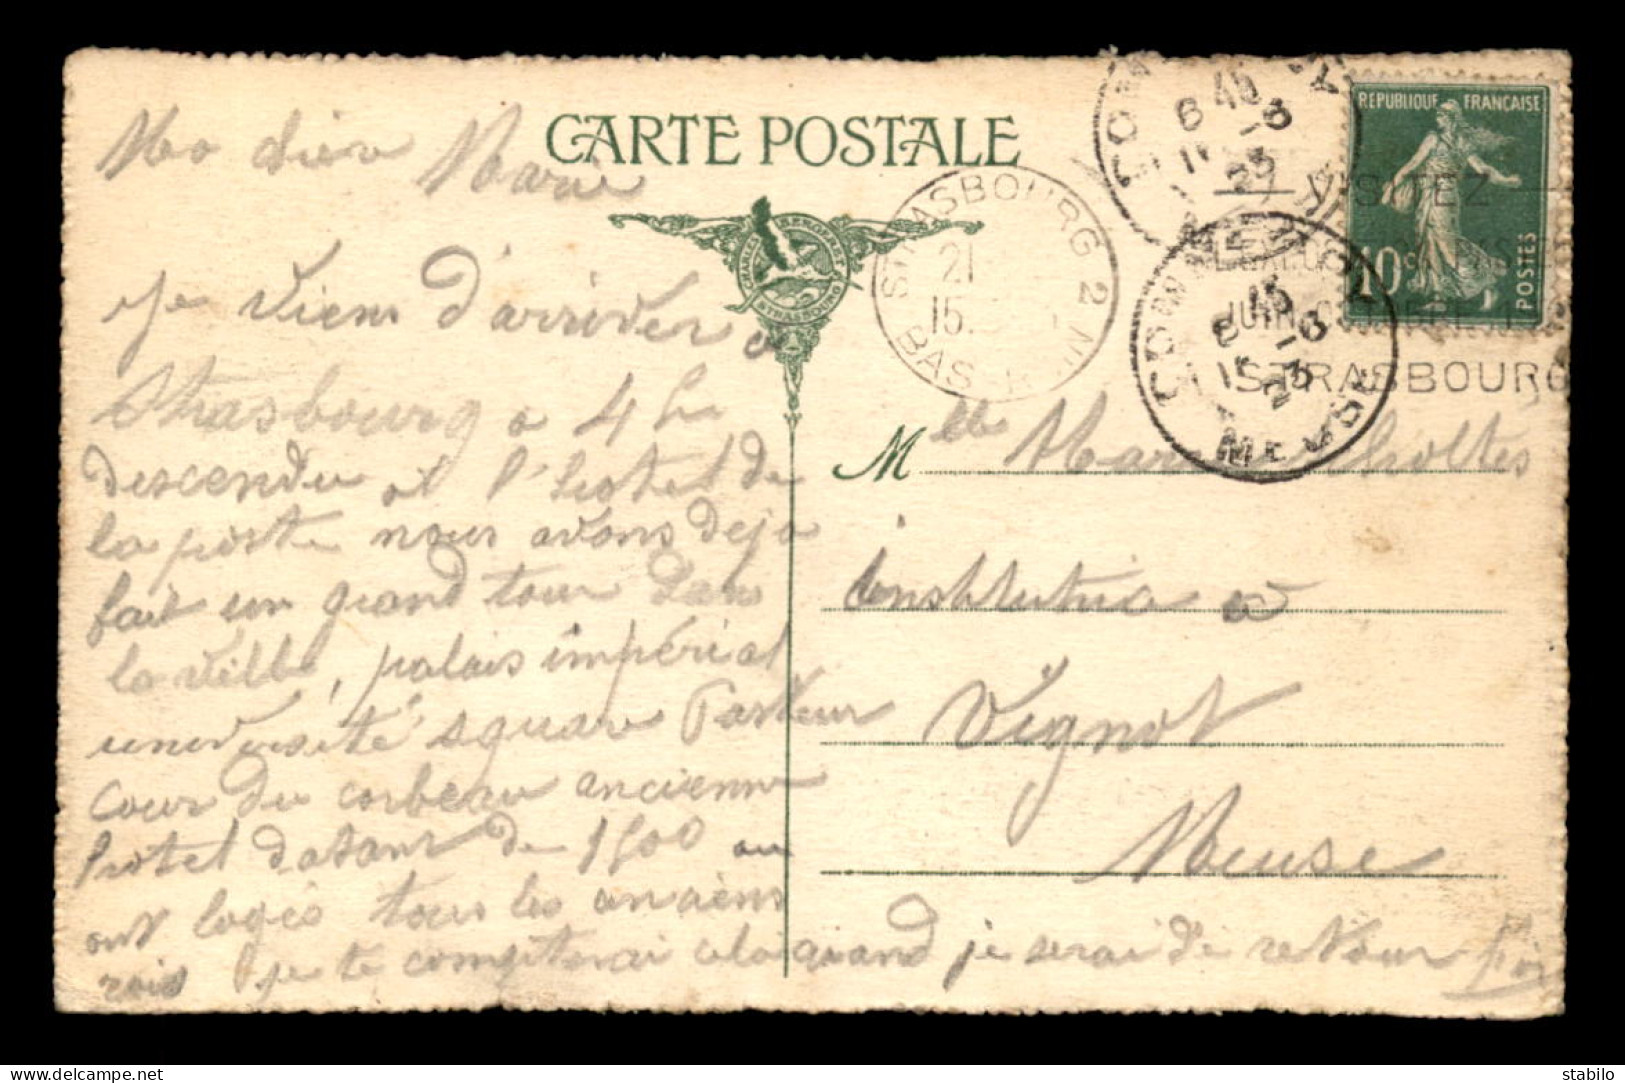 CARTE POSTALE
Ma chère Marie
Je viens d'arriver a
Strasbourg a 4 h
descendu a l'hotel de
la poste nous avons deja
fait un grand tour dans
la ville, palais impérial
université square Pasteur
cour du corbeau ancienne
hotel datant de 1500 ou
ont logés tous les anciens
rois je te compterai cela quand je serai de retour
CHARLES BERGERET STRASBOURG
STRASBOURG 2
21
15
BAS
COMMERCY
6 45
-6
23
COMMERCY
6 45
-6
23
MEUSE
REPUBLIQUE FRANÇAISE
10c
POSTES
VISITEZ
JUIN
STRASBOURG
Mlle Marie
institutrice a
Vignot
Meuse
stabilo
www.delcampe.net